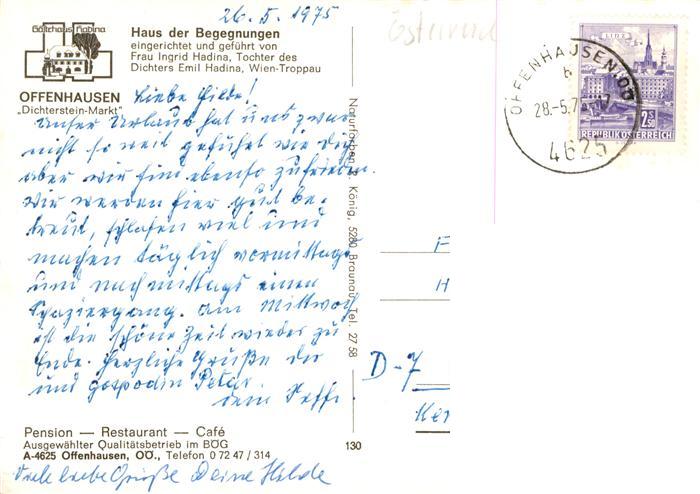 26.5.1975
Österreich
Gästehaus Hadina
Haus der Begegnungen
eingerichtet und geführt von
Frau Ingrid Hadina, Tochter des
Dichters Emil Hadina, Wien-Troppau
OFFENHAUSEN
„Dichterstein-Markt"
Liebe Hilde!
Unser Urlaub hat uns zwar
nicht so weit geführt wie dich
aber wir sind ebenso zufrieden.
Wir werden hier gut be-
treut, schlafen viel und
machen täglich vormittags
und nachmittags einen
Spaziergang. Am Mittwoch
ist die schöne Zeit wieder zu
Ende. Herzliche Grüße dir
und gospodin Peter.
dein
Pension — Restaurant — Café
Ausgewählter Qualitätsbetrieb im BÖG
A-4625 Offenhausen, OÖ., Telefon 0 72 47 / 314
Viele liebe Grüße Deine Hilde
130
Naturfarben König, 5280 Braunau, Tel. 27 58
LINZ
2.50
REPUBLIK ÖSTERREICH
OFFENHAUSEN, OÖ
b
28.-5.7
4625
F
H
D-7